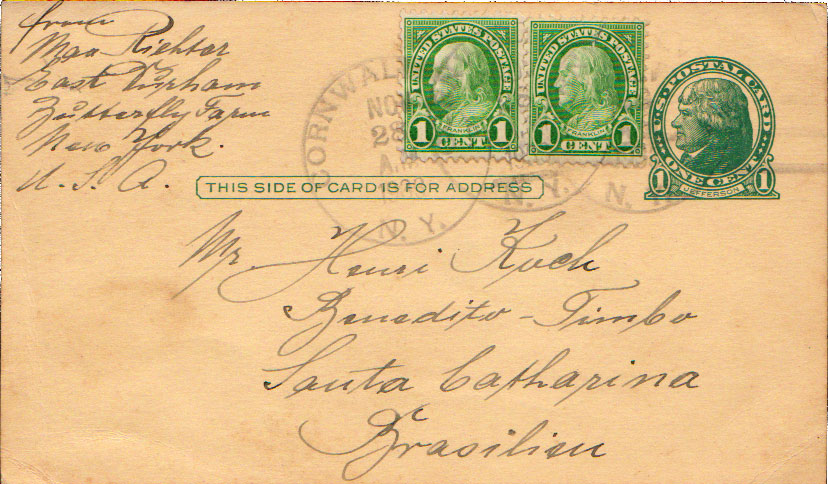 from
Max Richter
East Durham
Butterfly Farm
New York.
U. S. A.
UNITED STATES POSTAGE
1 FRANKLIN 1
CENT
UNITED STATES POSTAGE
1 FRANKLIN 1
CENT
U.S. POSTAL CARD
ONE CENT
1 JEFFERSON 1
CORNWALL
NOV
28
N. Y.
N. Y.
N.
THIS SIDE OF CARD IS FOR ADDRESS
Mr. Henri Koch
Benedito - Timbo
Santa Catharina
Brasilien